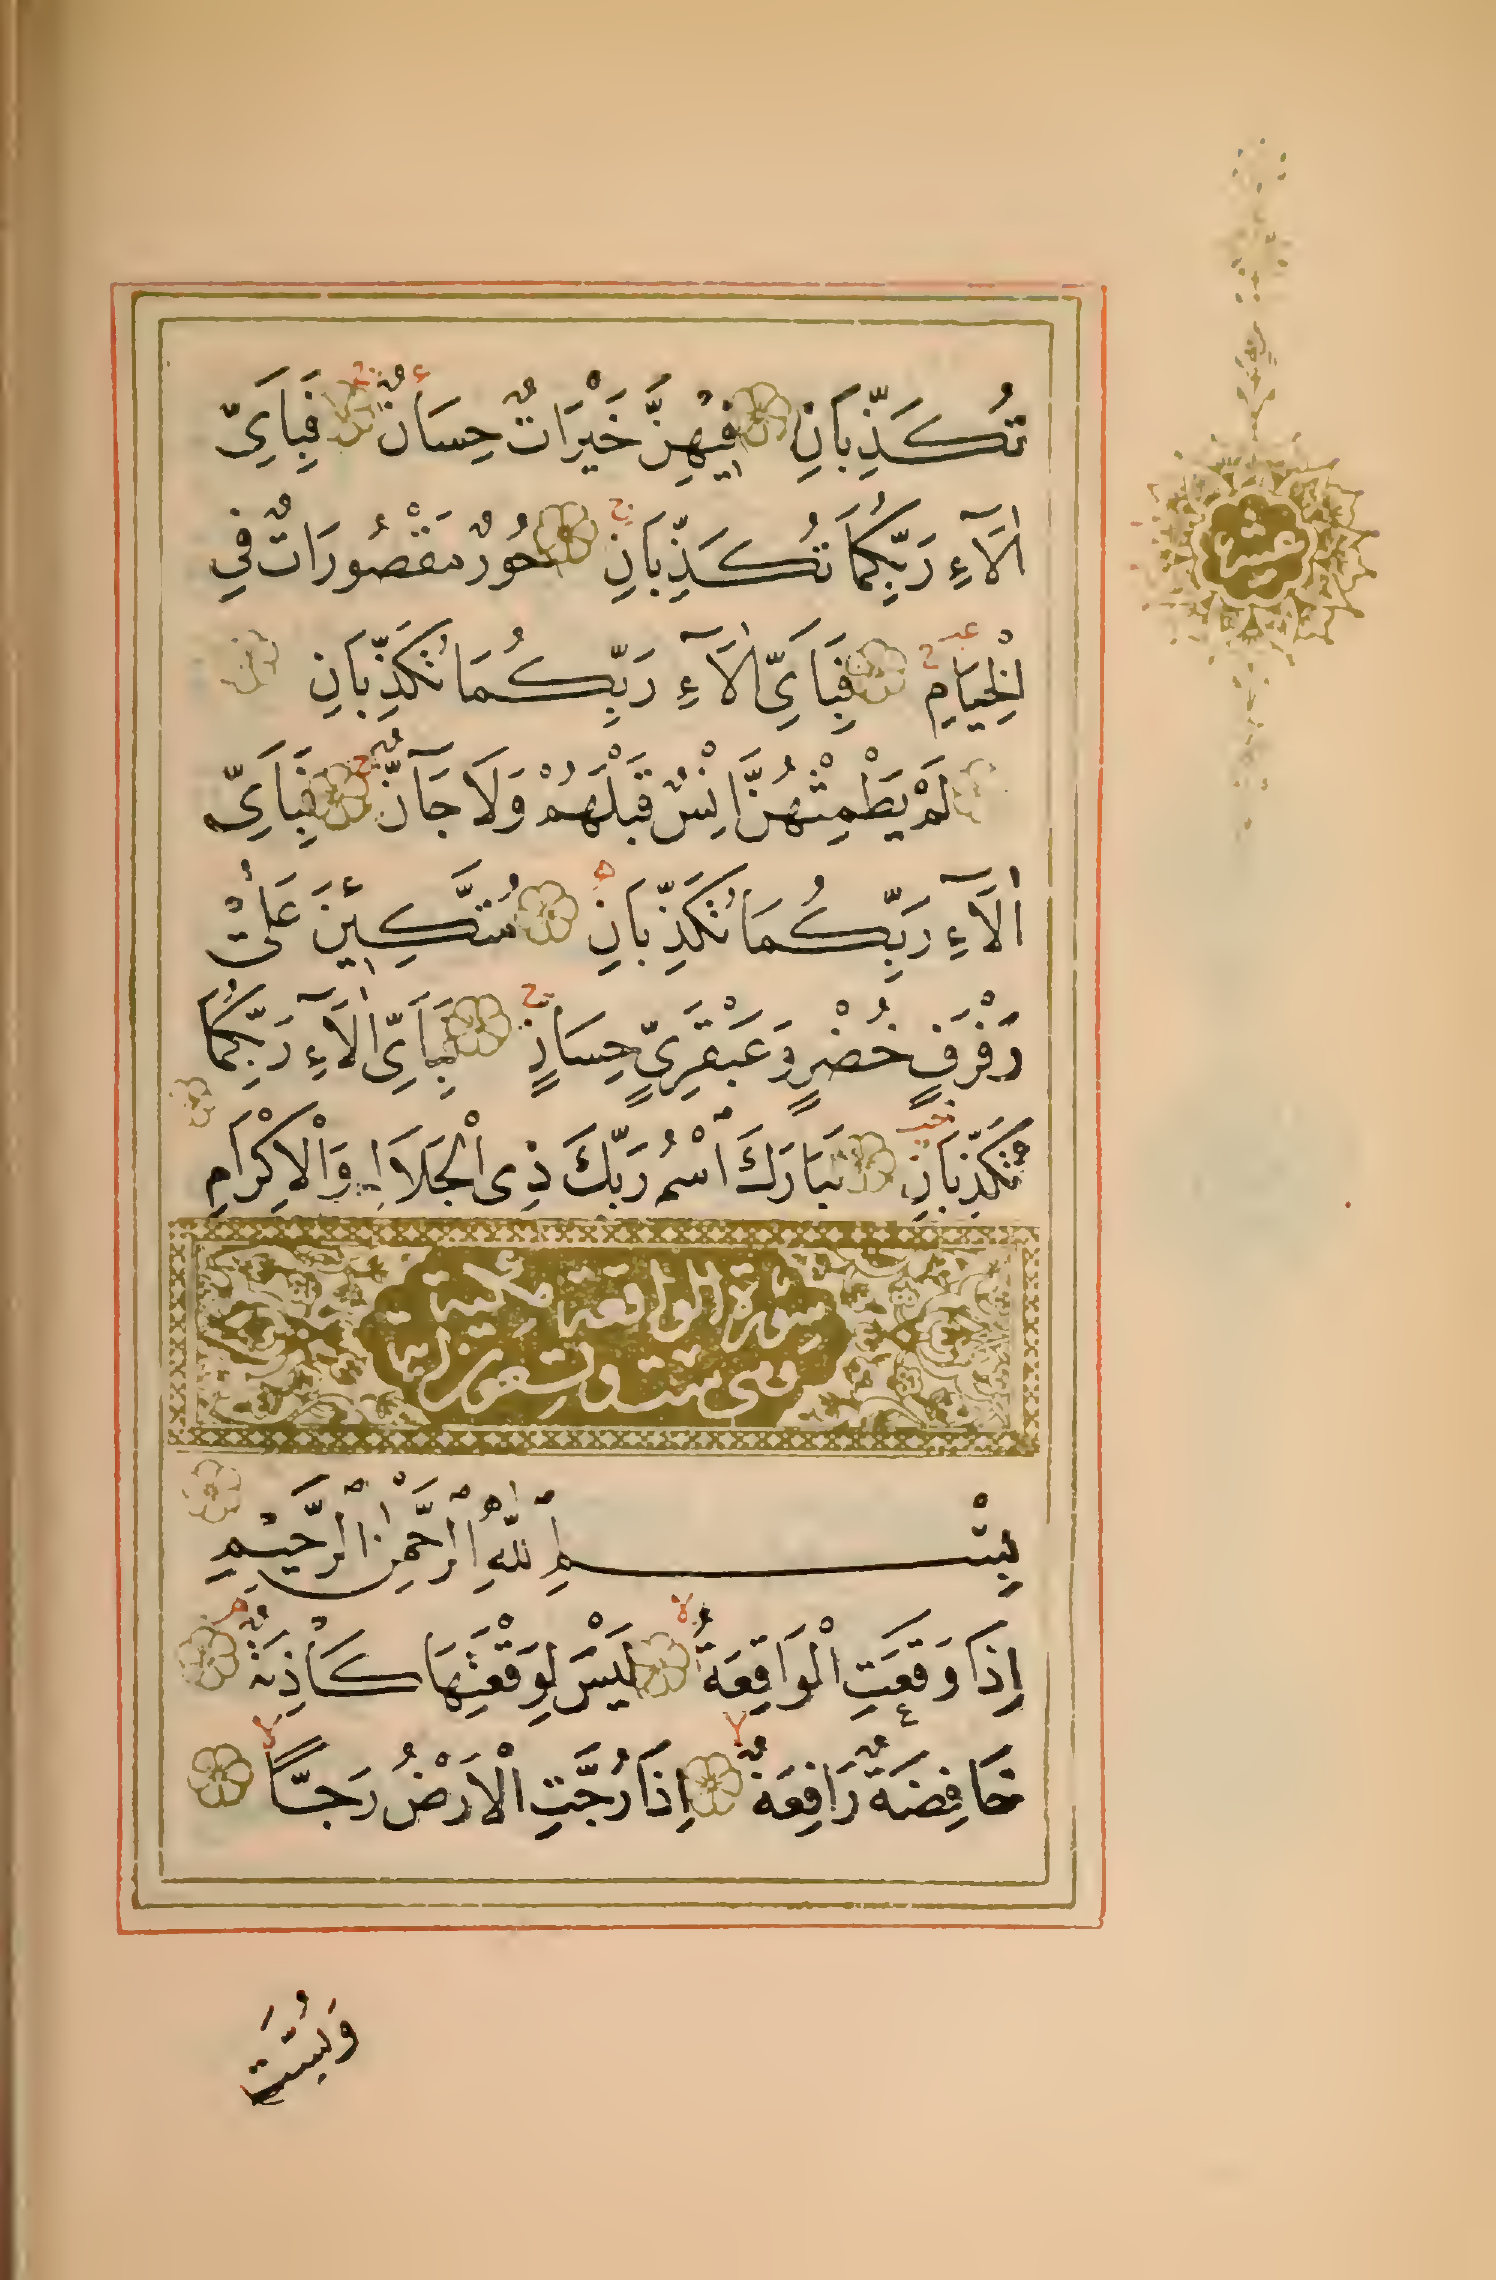 تُكَذِّبَانِ فِيهِنَّ خَيْرَاتٌ حِسَانٌ فَبِاَيِّ
اٰلَآءِ رَبِّكُمَا تُكَذِّبَانِ حُورٌ مَقْصُورَاتٌ فِي
الْخِيَامِ فَبِاَيِّ اٰلَآءِ رَبِّكُمَا تُكَذِّبَانِ
لَمْ يَطْمِثْهُنَّ اِنْسٌ قَبْلَهُمْ وَلَا جَآنٌّ فَبِاَيِّ
اٰلَآءِ رَبِّكُمَا تُكَذِّبَانِ مُتَّكِـِٔينَ عَلٰى
رَفْرَفٍ خُضْرٍ وَعَبْقَرِيٍّ حِسَانٍ فَبِاَيِّ اٰلَآءِ رَبِّكُمَا
تُكَذِّبَانِ تَبَارَكَ اسْمُ رَبِّكَ ذِي الْجَلَالِ وَالْاِكْرَامِ
سورة الواقعة مكية
وهي ست وتسعون اية
بِسْمِ اللّٰهِ الرَّحْمٰنِ الرَّحِيمِ
اِذَا وَقَعَتِ الْوَاقِعَةُ لَيْسَ لِوَقْعَتِهَا كَاذِبَةٌ
خَافِضَةٌ رَافِعَةٌ اِذَا رُجَّتِ الْاَرْضُ رَجًّا
وَبُسَّتِ